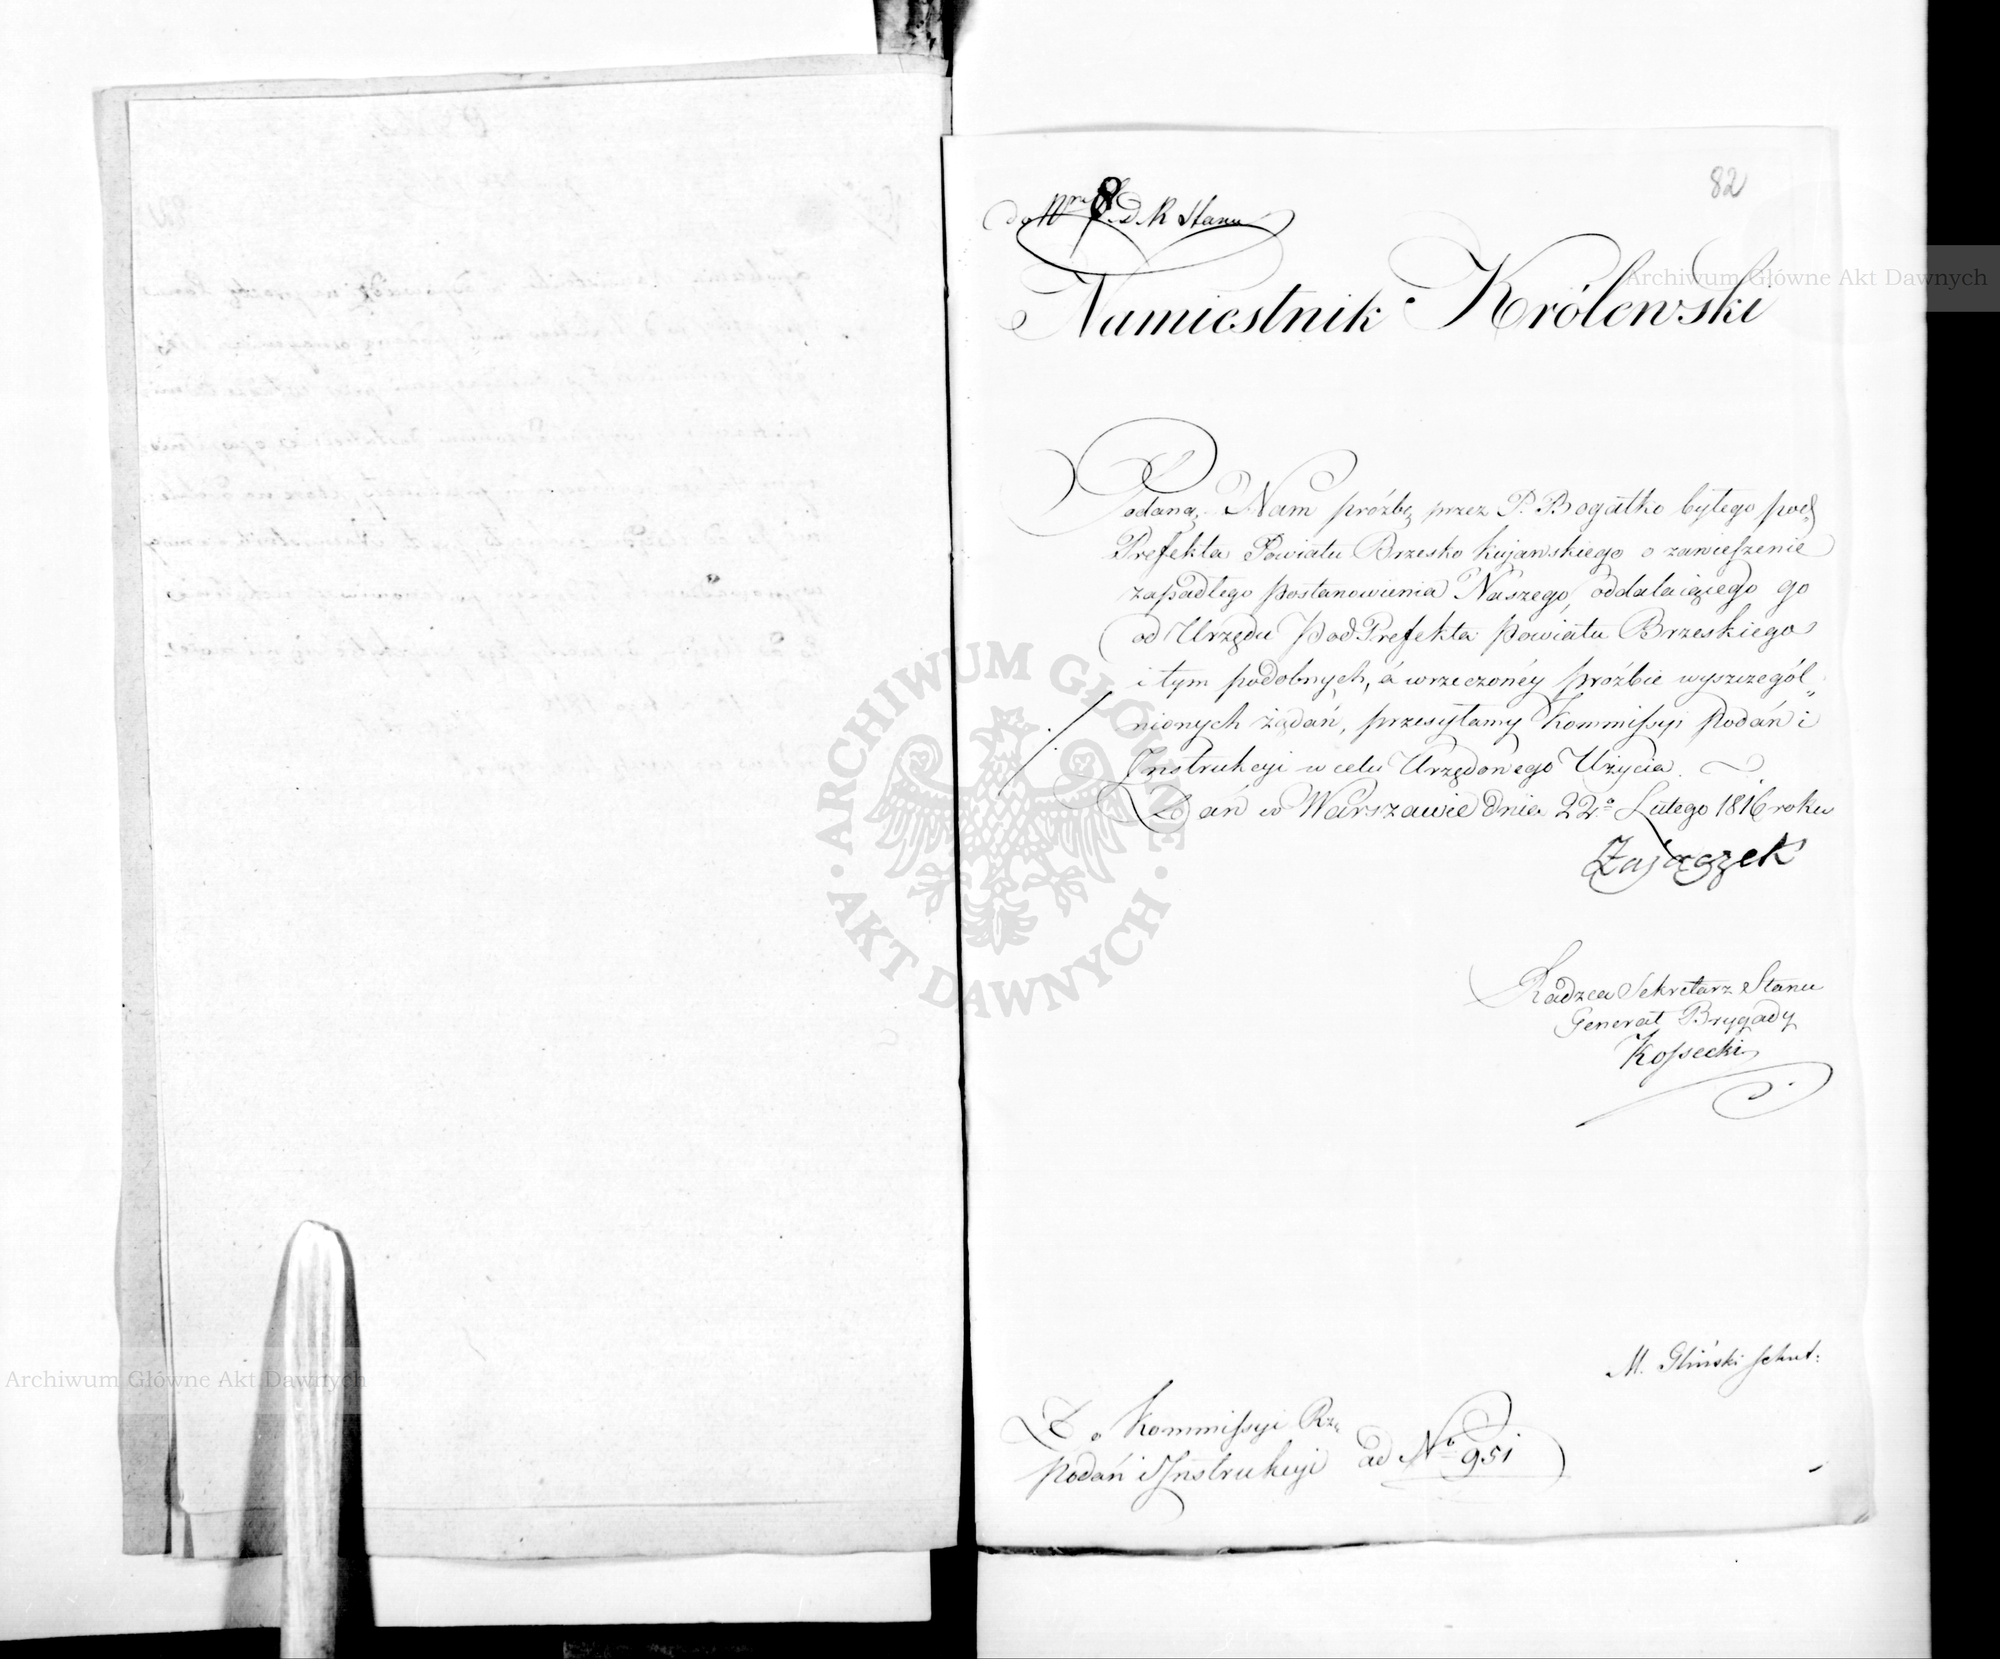 82
8
Stanu
Namiestnik Królewski
Podaną Nam prózbę przez P. Bogatko byłego pod„
Prefekta Powiatu Brzesko kujawskiego o zawieszenie
zapadłego postanowienia Naszego, oddalaiącego go
od Urzędu PodPrefekta Powiatu Brzeskiego
i tym podobnych, á wrzeczonéy prózbie wyszczegól„
nionych żądań, przesyłamy Kommissyi Podań i
Instrukcyi w celu Urzędowego Użycia.
Dań w Warszawie dnia 22º Lutego 1816 roku
Zajączek
Radzca Sekretarz Stanu
Generał Brygady
Kossecki
M. Gliński
Do Kommissyi Rzą
Podań i Instrukcyi ad Nº 951
ARCHIWUM GŁÓWNE AKT DAWNYCH
Archiwum Główne Akt Dawnych
Archiwum Główne Akt Dawnych